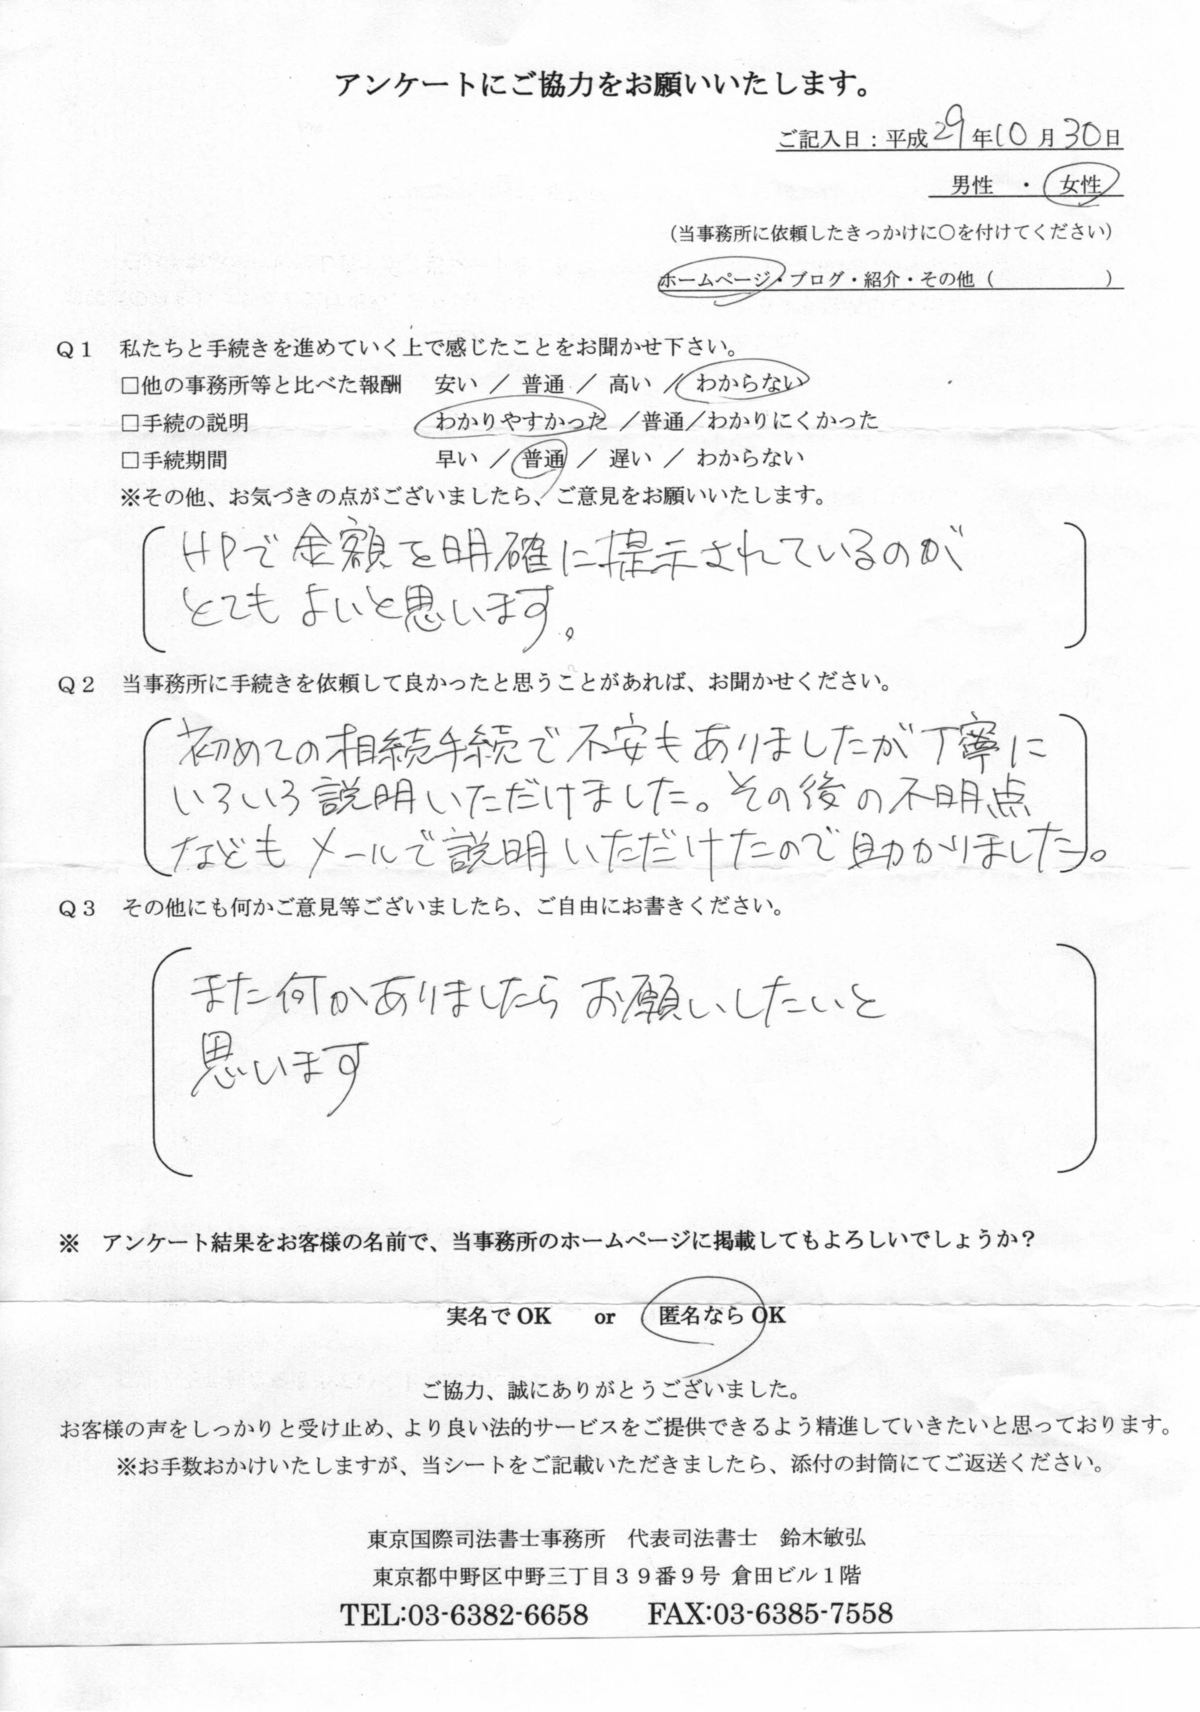 アンケートにご協力をお願いいたします。
ご記入日：平成29年10月30日
男性　・　女性
（当事務所に依頼したきっかけに〇を付けてください）
ホームページ・ブログ・紹介・その他（　　　　　　）
Ｑ１　私たちと手続きを進めていく上で感じたことをお聞かせ下さい。
□他の事務所等と比べた報酬　安い ／ 普通 ／ 高い ／ わからない
□手続の説明　わかりやすかった ／普通／わかりにくかった
□手続期間　早い ／ 普通 ／ 遅い ／ わからない
※その他、お気づきの点がございましたら、ご意見をお願いいたします。
HPで金額を明確に提示されているのが
とてもよいと思います。
Ｑ２　当事務所に手続きを依頼して良かったと思うことがあれば、お聞かせください。
初めての相続手続で不安もありましたが丁寧に
いろいろ説明いただけました。その後の不明点
などもメールで説明いただけたので助かりました。
Ｑ３　その他にも何かご意見等ございましたら、ご自由にお書きください。
また何かありましたらお願いしたいと
思います
※　アンケート結果をお客様の名前で、当事務所のホームページに掲載してもよろしいでしょうか？
実名でOK　or　匿名ならOK
ご協力、誠にありがとうございました。
お客様の声をしっかりと受け止め、より良い法的サービスをご提供できるよう精進していきたいと思っております。
※お手数おかけいたしますが、当シートをご記載いただきましたら、添付の封筒にてご返送ください。
東京国際司法書士事務所　代表司法書士　鈴木敏弘
東京都中野区中野三丁目３９番９号 倉田ビル１階
TEL:03-6382-6658　FAX:03-6385-7558